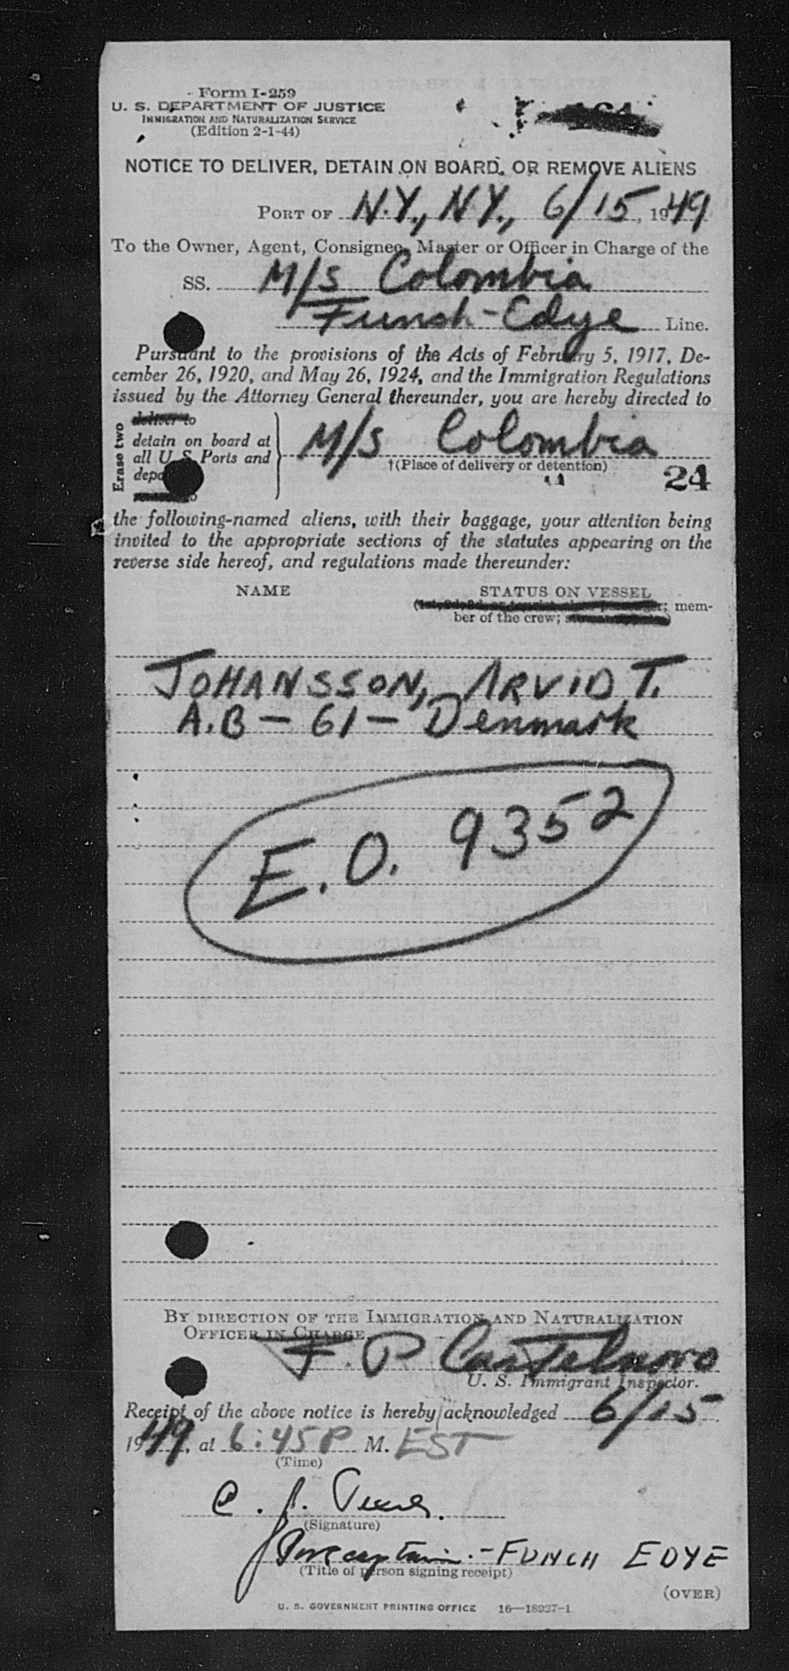 Form I-259
U. S. DEPARTMENT OF JUSTICE
IMMIGRATION AND NATURALIZATION SERVICE
(Edition 2-1-44)
NOTICE TO DELIVER, DETAIN ON BOARD, OR REMOVE ALIENS
PORT OF N.Y., N.Y., 6/15, 1949
To the Owner, Agent, Consignee, Master or Officer in Charge of the
SS. M/S Colombia
Funch-Edye Line.
Pursuant to the provisions of the Acts of February 5, 1917, De-
cember 26, 1920, and May 26, 1924, and the Immigration Regulations
issued by the Attorney General thereunder, you are hereby directed to
Erase two
deliver to
detain on board at
all U. S. Ports and
M/S Colombia
†(Place of delivery or detention)
24
the following-named aliens, with their baggage, your attention being
invited to the appropriate sections of the statutes appearing on the
reverse side hereof, and regulations made thereunder:
NAME STATUS ON VESSEL
mem-
ber of the crew;
JOHANSSON, ARVID T.
A.B - 61 - Denmark
E.O. 9352
BY DIRECTION OF THE IMMIGRATION AND NATURALIZATION
OFFICER IN CHARGE,
F. P Castelnovo
U. S. Immigrant Inspector.
Receipt of the above notice is hereby acknowledged 6/15,
1949, at 6:45 P M. EST
(Time)
(Signature)
Portcaptain. - FUNCH EDYE
(Title of person signing receipt)
(OVER)
U. S. GOVERNMENT PRINTING OFFICE 16—18927-1